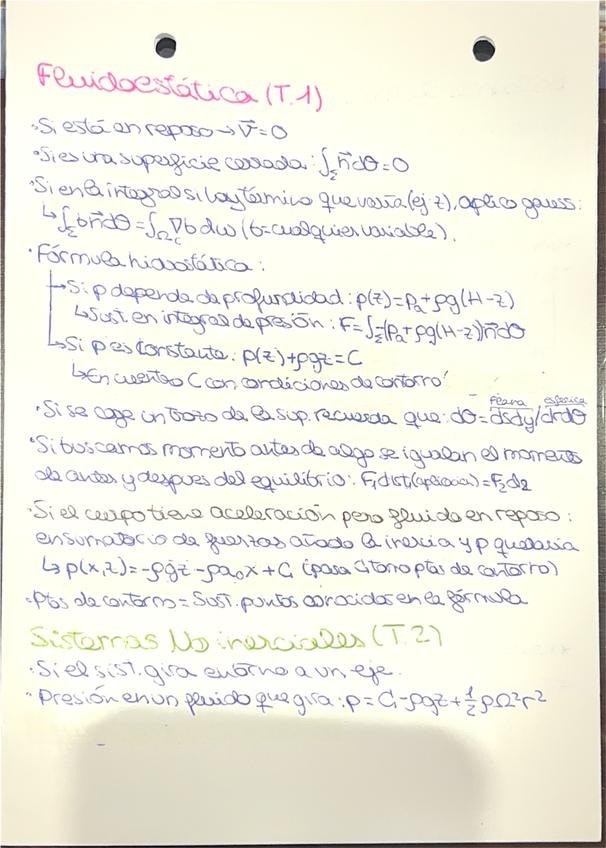 Fluidoestática (T.1)
· Si está en reposo → V⃗=0
· Si es una superficie cerrada: ∫_Σ n⃗dσ=0
· Si en la integral si hay término que varía (ej z), aplico gauss:
↳ ∫_Σ bn⃗dσ = ∫_Ωc ∇b dω (b=cualquier variable).
· Fórmula hidrostática:
→ Si p depende de profundidad: p(z)=Pa+ρg(H-z)
↳ Sust. en integral de presión: F=∫_Σ(Pa+ρg(H-z))n⃗dσ
→ Si p es constante: p(z)+ρgz=C
↳ Encuentro C con condiciones de contorno
plana esférica
· Si se coge un trozo de la sup. recuerda que: dσ=dsdy/drdθ
· Si buscamos momento antes de algo se igualan el momento
de antes y despues del equilibrio: F₁dist₁(aplicación)=F₂d₂
· Si el cuerpo tiene aceleración pero fluido en reposo:
en sumatorio de fuerzas añado la inercia y p quedaría
↳ p(x,z)=-ρgz-ρa₀x+C₁ (para C₁ tomo ptos de contorno)
· Ptos de contorno = Sust. puntos conocidos en la fórmula
Sistemas No inerciales (T.2)
· Si el sist. gira entorno a un eje.
· Presión en un fluido que gira: p=C₁-ρgz+½ρΩ²r²